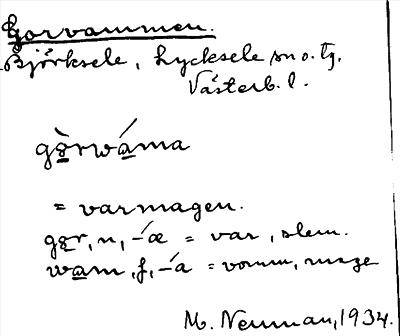 Gorvammen.
Björksele, Lycksele sn o. tg.
Västerb. l.
gòrwáma
= varmagen.
gor, n, -́æ = var, slem.
wam, f, -́a = vomm, mage
M. Nenman, 1934.